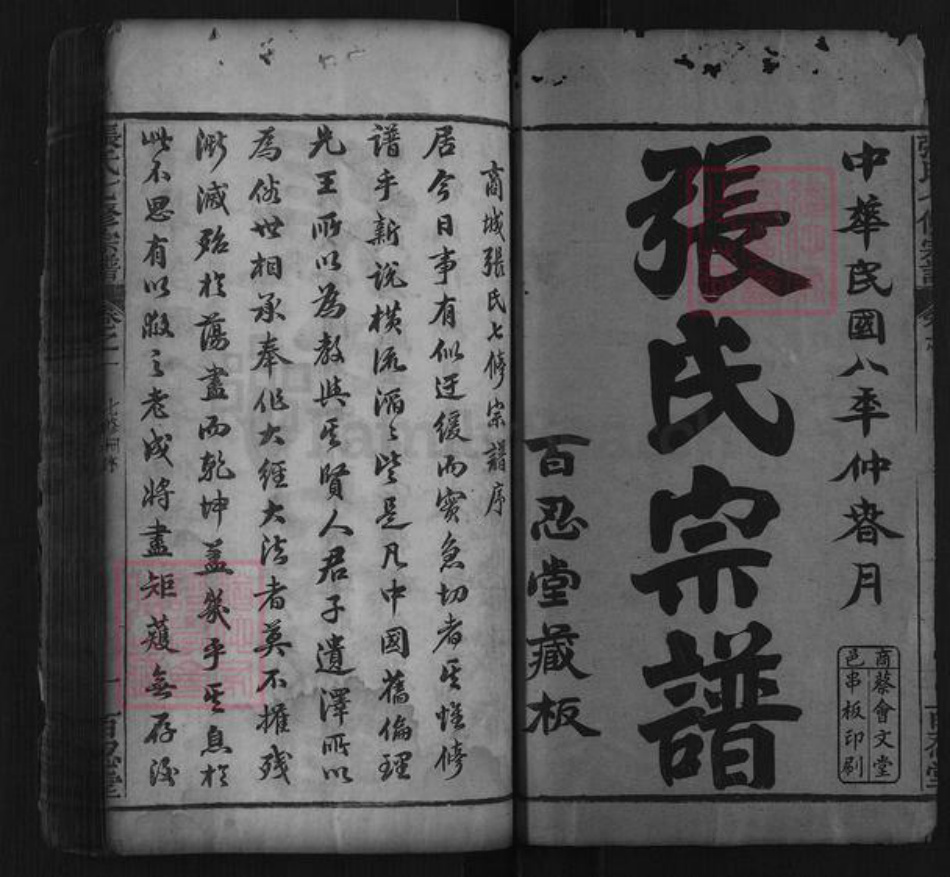 中華民國八年仲春月
商邑蔡會文堂串板印刷
張氏宗譜
百忍堂藏板
商城張氏七修宗譜序
居今日事有似迂緩而實急切者其惟修
譜乎新說橫流滔々皆是凡中國舊倫理
先王所以為教與其賢人君子遺澤所以
為俗世相承奉作大經大法者莫不摧殘
澌滅殆於蕩盡而乾坤蓋幾乎其息於
此不思有以救之老成將盡矩矱無存後
張氏七修宗譜
百忍堂